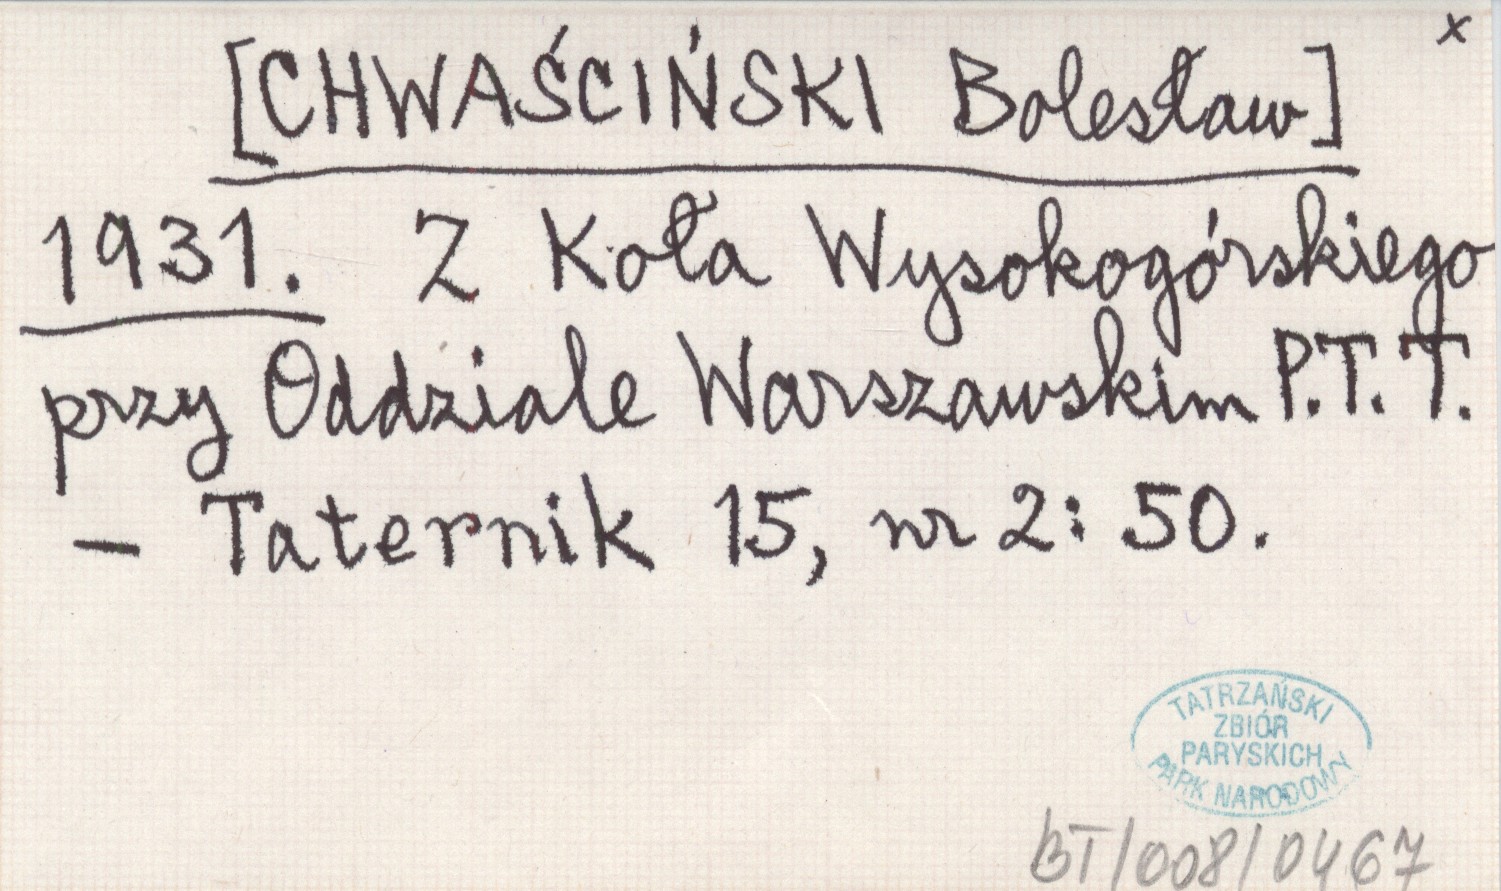 x
[CHWAŚCIŃSKI Bolesław]
1931. Z Koła Wysokogórskiego
przy Oddziale Warszawskim P.T.T.
— Taternik 15, nr 2: 50.
TATRZAŃSKI
ZBIÓR
PARYSKICH
PARK NARODOWY
BT/008/0467